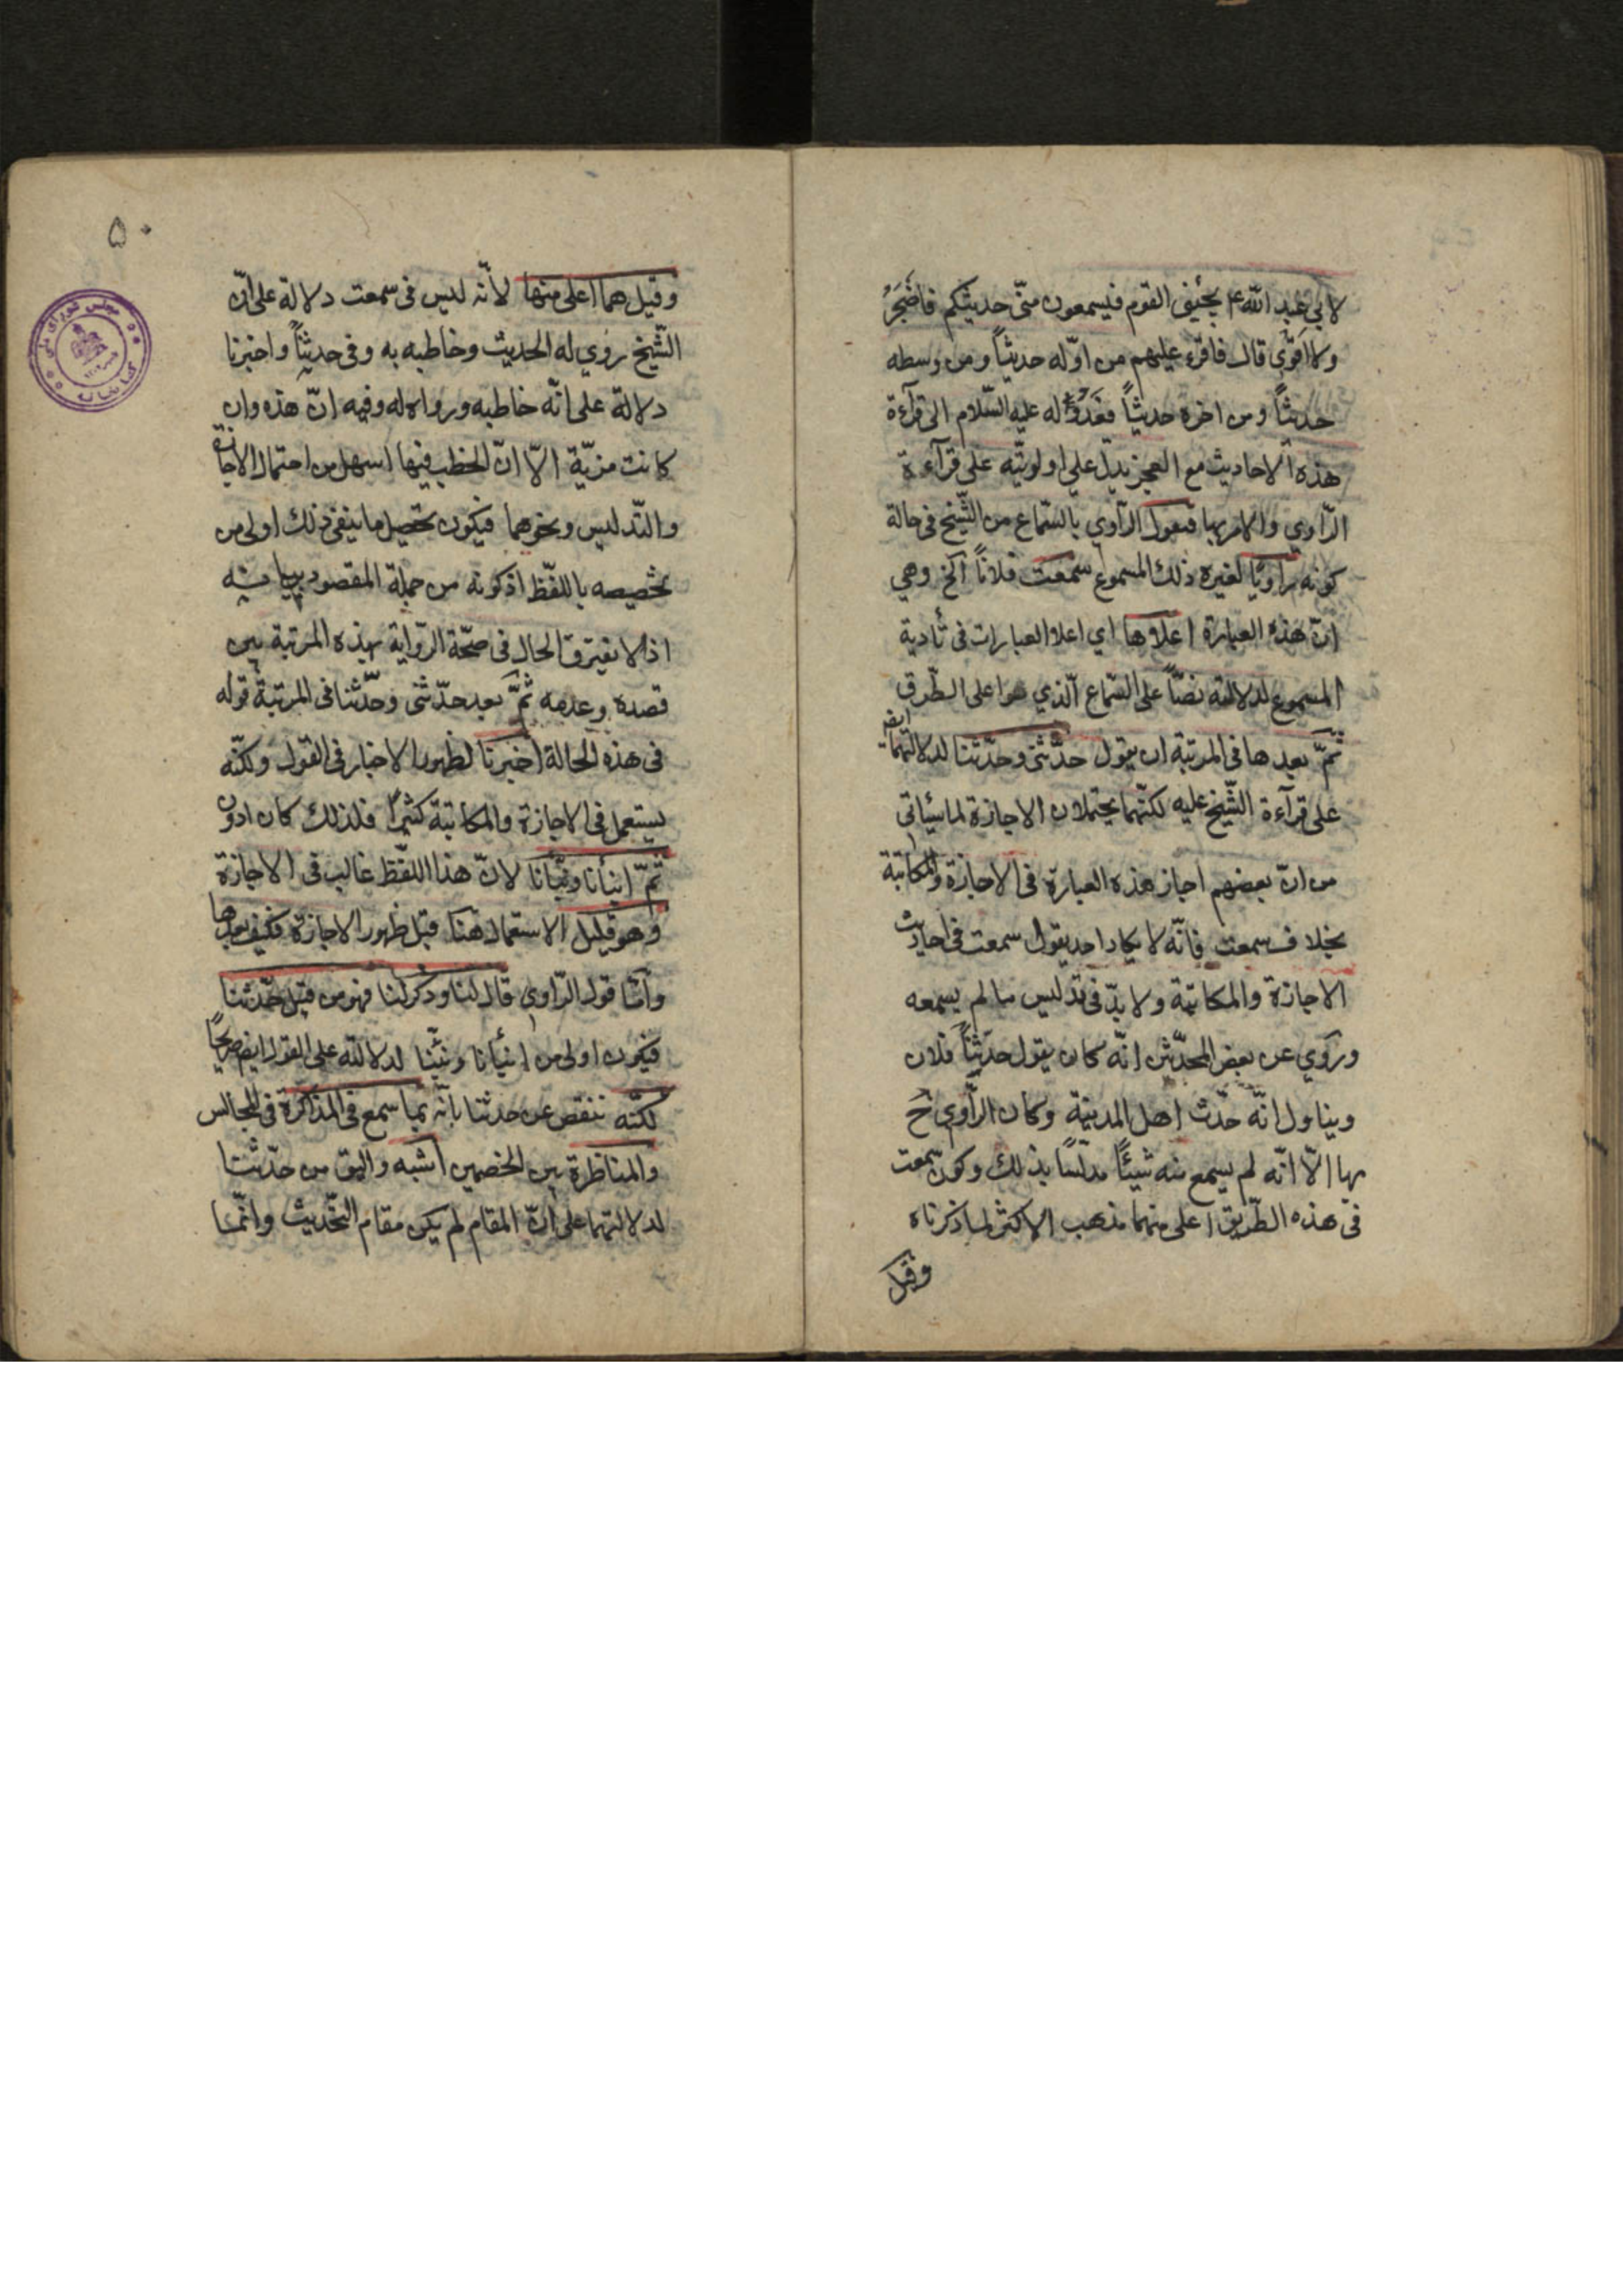 لابي عبد الله ع يجيئني القوم فيسمعون منّي حديثكم فاضجَرُ
ولا اقوّى قال فاقرء عليهم من اوّله حديثاً ومن وسطه
حديثاً ومن اخره حديثاً فعدوله عليه السّلام الى قرآءة
هذه الاحاديث مع العجز يدلّ على اولويّته على قرآءة
الرّاوي والامر بها فيقول الرّاوي بالسّماع من الشّيخ في حالة
كونه راويًا لغيره ذلك المسموع سمعت فلاناً الخ وهي
انّ هذه العبارة اعلاها اي اعلا العبارات في تأدية
المسموع لدلالته نصّاً على السّماع الّذي هو اعلى الطّرق
ثمّ بعدها في المرتبة ان يقول حدّثني وحدّثنا لدلالتهما ايضا
على قرآءة الشّيخ عليه لكنّهما يحتملان الاجازة لما سيأتي
من انّ بعضهم اجاز هذه العبارة في الاجازة والمكاتبة
بخلاف سمعت فانّه لا يكاد احد يقول سمعت في احاديث
الاجازة والمكاتبة ولا يدّ في تدليس ما لم يسمعه
وروي عن بعض المحدّثين انّه كان يقول حدّثنا فلان
ويناول انّه حدّث اهل المدينة وكان الرّاوي ح
بها الّا انّه لم يسمع منه شيئاً مدلّسًا بذلك وكون سمعت
في هذه الطّريق اعلى منهما مذهب الاكثر لما ذكرناه
وقيل
۵۰
وقيل هما اعلى منها لانّه ليس في سمعت دلالة على انّ
الشّيخ روي له الحديث وخاطبه به وفي حديثنا واخبرنا
دلالة على انّه خاطبه ورواه له وفيه انّ هذه وان
كانت مزيّة الّا انّ الخطب فيها اسهل من احتمال الاجازة
والتّدليس ونحوهما فيكون تحصيل ما ينفي ذلك اولى من
تخصيصه باللفّظ اذ كونه من جملة المقصودين
اذ لا يفترق الحال في صحّة الرّواية بهذه المرتبة بين
قصده وعدمه ثمّ بعد حدّثني وحدّثنا في المرتبة قوله
في هذه الحالة اخبرنا لظهور الاخبار في القول ولكنّه
يستعمل في الاجازة والمكاتبة كثيرًا فلذلك كان ادون
ثمّ انبأنا ونبّانا لانّ هذا اللفّظ غالب في الاجازة
وهو قليل الاستعمال هنا قبل ظهور الاجازة فكيف بعدها
وامّا قول الرّاوي قال لنا وذكر لنا فهو من قبيل حدّثنا
فيكون اولى من انبأنا ونبّئنا لدلالته على القول ايض صريحًا
لكنّه ينقص عن حدثنا بانّه بما سمع في المذاكرة في المجالس
والمناظرة بين الخصمين اشبه واليق من حدّثنا
لدلالتهما على انّ المقام لم يكن مقام التّحديث وانّما